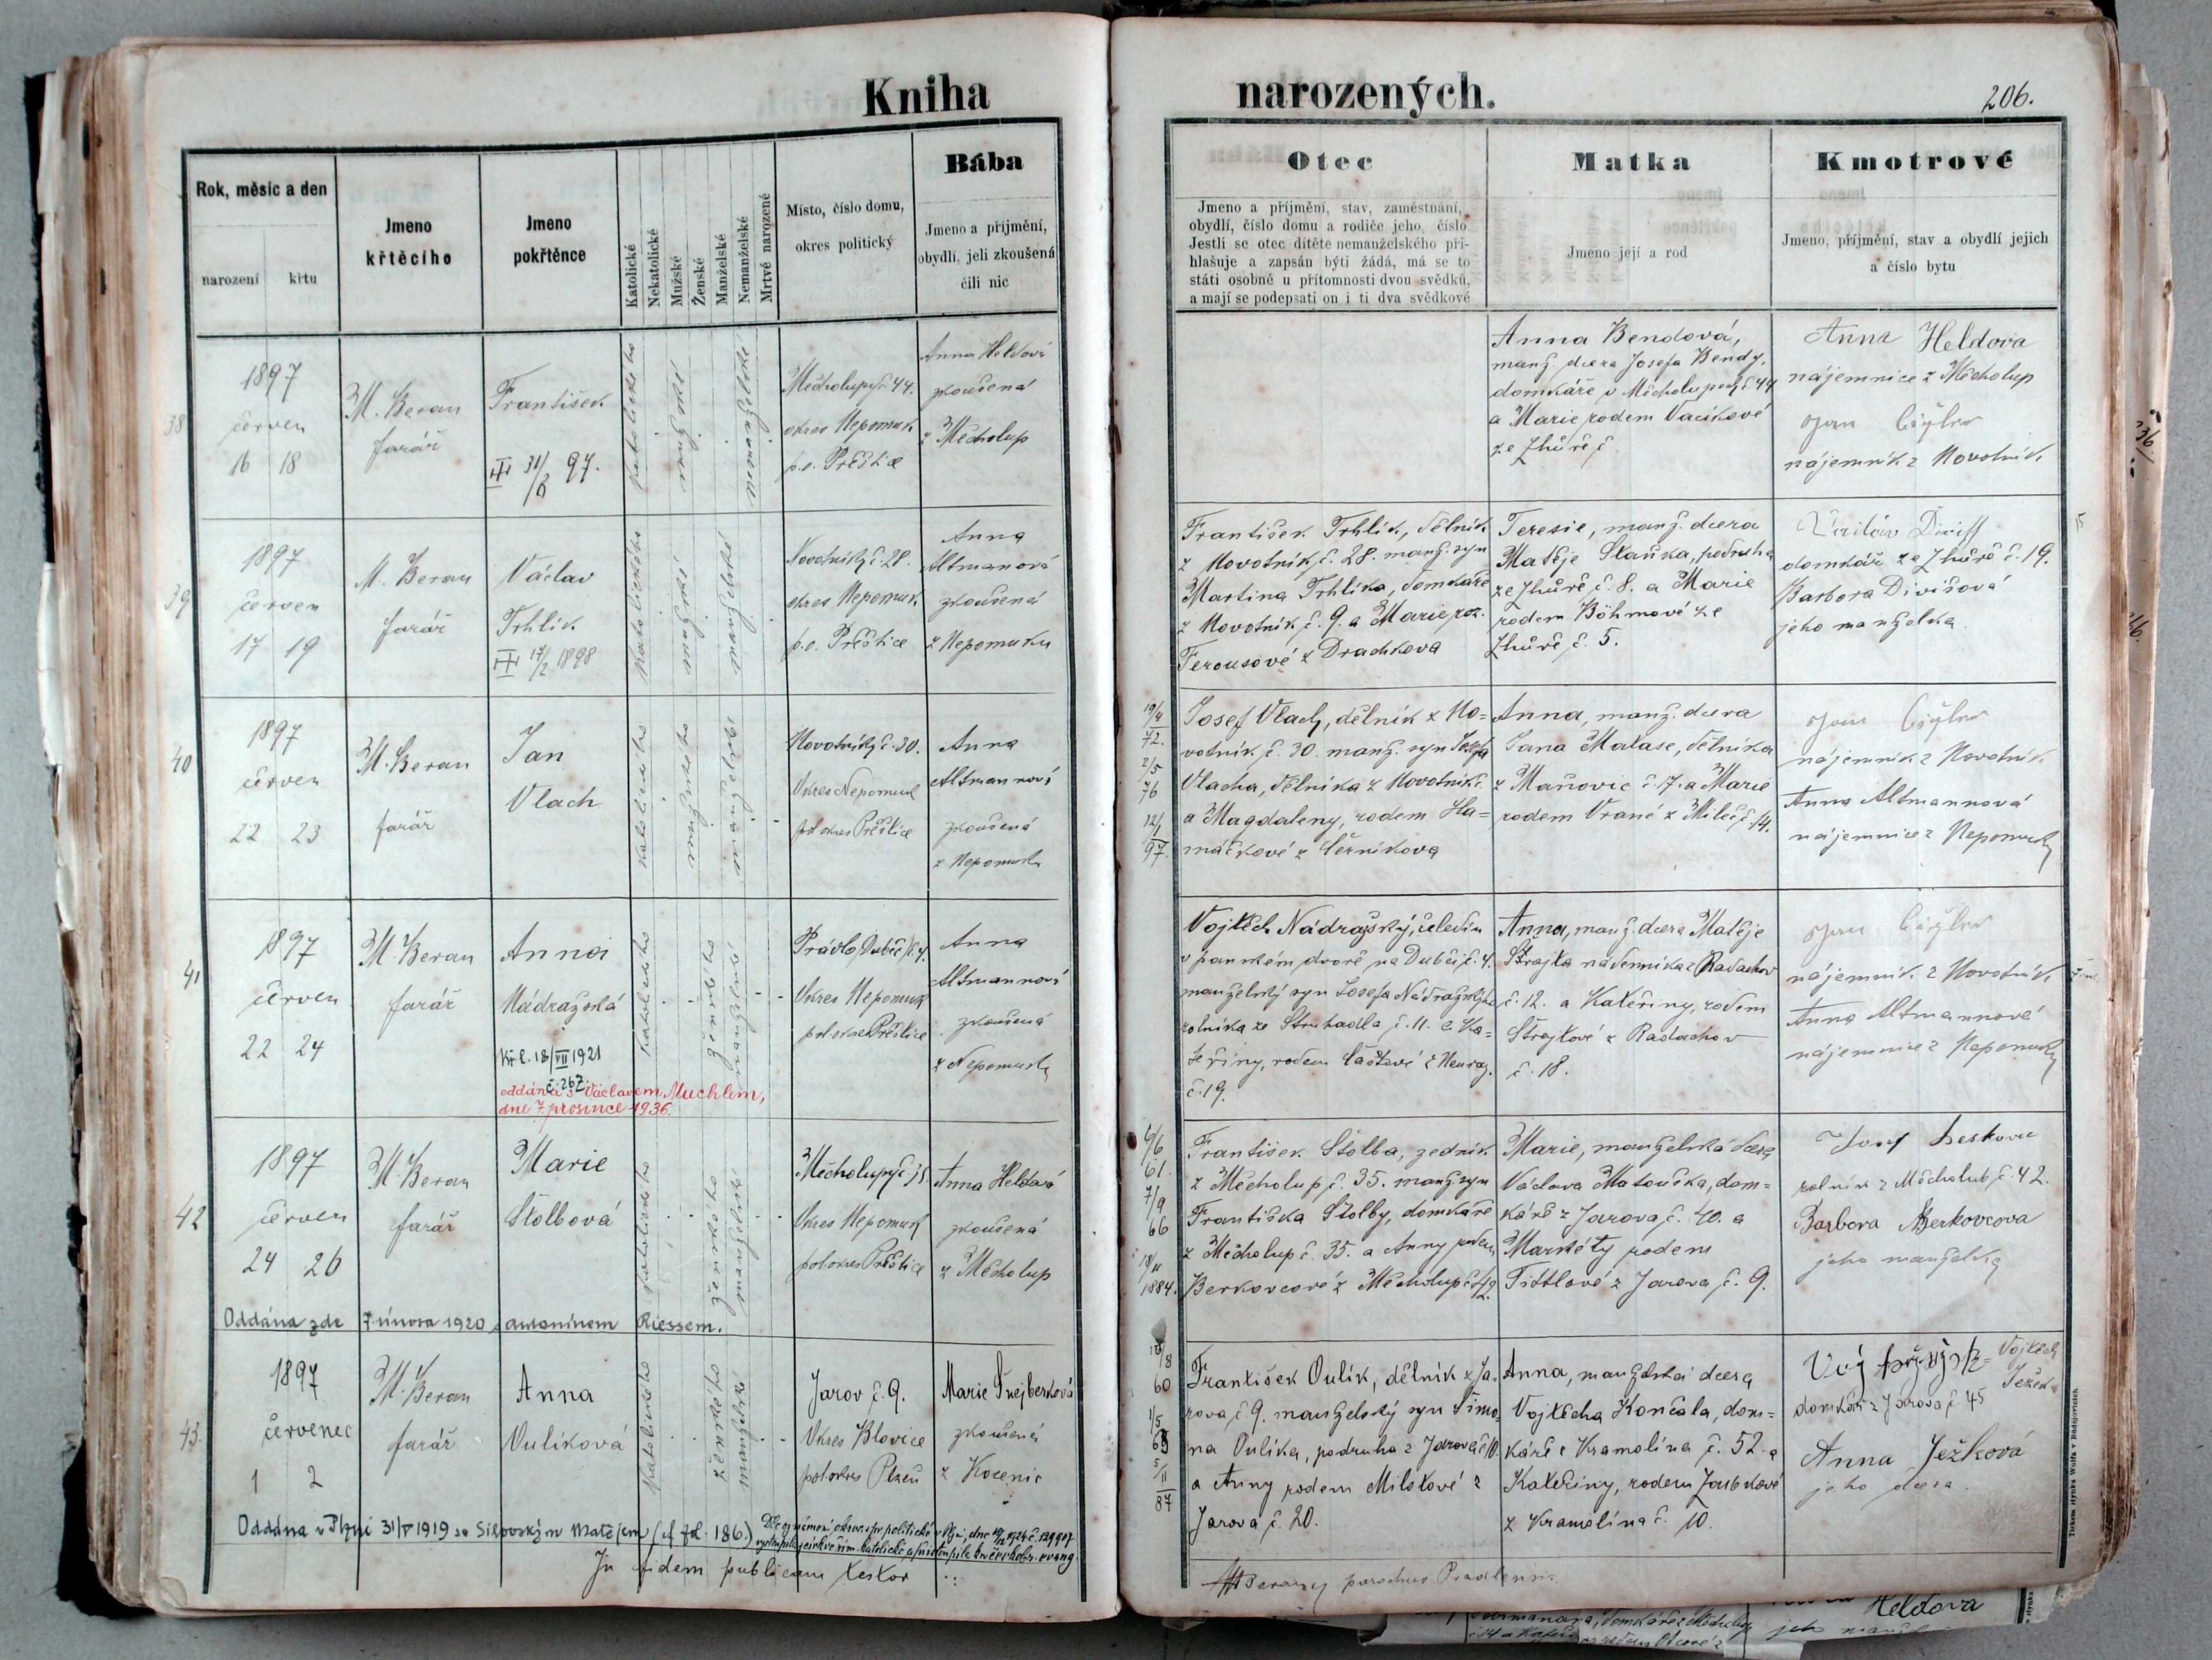 Kniha
narozených.
206.
Rok, měsíc a den
narození
křtu
Jmeno
křtěcího
Jmeno
pokřtěnce
Katolické
Nekatolické
Mužské
Ženské
Manželské
Nemanželské
Mrtvě narozené
Místo, číslo domu,
okres politický
Bába
Jmeno a přijmění,
obydlí, jeli zkoušená
čili nic
Otec
Jmeno a příjmění, stav, zaměstnání,
obydlí, číslo domu a rodiče jeho, číslo.
Jestli se otec dítěte nemanželského při-
hlašuje a zapsán býti žádá, má se to
státi osobně u přítomnosti dvou svědků,
a mají se podepsati on i ti dva svědkové
Matka
Jmeno její a rod
Kmotrové
Jmeno, příjmění, stav a obydlí jejich
a číslo bytu
38
1897
červen
16 18
M. Beran
farář
František
31/8 97.
katolického
mužské
nemanželské
Měcholupy č 44.
okres Nepomuk
p.o. Přeštice
Anna Heldová
zkoušená
z Měcholup
Anna Bendová,
manž. dcera Josefa Bendy,
domkáře v Měcholupech č 44
a Marie rodem Vacíkové
ze Zhůře č
Anna Heldova
nájemnice z Měcholup
Jan
nájemník z Novotník
39
1897
červen
17 19
M. Beran
farář
Václav
Trhlík
17/2 1898
katolického
mužské
manželské
Novotníky č 28.
okres Nepomuk
p.o. Přeštice
Anna
Altmanová
zkoušená
z Nepomuku
František Trhlík, dělník
z Novotník č. 28. manž. syn
Martina Trhlíka, domkáře
z Novotník č. 9. a Marie roz.
Ferousové z Drachkova
Teresie, manž. dcera
Matěje Slavíka, podruha
ze Zhůře č. 8. a Marie
rodem Böhmové ze
Zhůře č. 5.
domkář ze Zhůře č. 19.
Barbora Divišová
jeho manželka
40
1897
červen
22 23
M. Beran
farář
Jan
Vlach
katolického
mužského
manželské
Novotníky č. 30.
Okres Nepomuk
pol okres Přeštice
Anna
Altmannová
zkoušená
z Nepomuku
19/4
72.
2/5
76
12/1
97.
Josef Vlach, dělník z No=
votník č. 30. manž. syn Josefa
Vlacha, dělníka z Novotník č
a Magdaleny, rodem Ha=
máčkové z Černíkova
Anna, manž. dcera
Jana Matase, dělníka
z Maňovic č. 17. a Marie
rodem Vrané z Milče č 14.
Jan
nájemník z Novotník
Anna Altmannová
nájemnice z Nepomuku
41
1897
červen
22 24
M. Beran
farář
Anna
Nádražská
18/VII 1921
č. 267
oddána s Václavem Muchlem,
dne 7. prosince 1936.
katolického
ženského
manželské
Prádlo /Dubč/ č. 4.
Okres Nepomuk
pol okres Přeštice
Anna
Altmannová
zkoušená
z Nepomuku
Vojtěch Nádražský, čeledín
v panském dvoře na Dubči č. 4.
manželský syn Josefa Nádražského
rolníka ze Struhadla č. 11. a Ka=
teřiny, rodem
č. 19.
Anna, manž. dcera Matěje
Štrojta nádenníka z Radochov
č. 12. a Kateřiny, rodem
Štrojtové z Radochov
č. 18.
Jan
nájemník z Novotník
Anna Altmannové
nájemnice z Nepomuku
42
1897
červen
24 26
M. Beran
farář
Marie
Štolbová
katolického
ženského
manželské
Měcholupy č 35.
Okres Nepomuk
pol okres Přeštice
Anna Heldová
zkoušená
z Měcholup
Oddána zde 7 února 1920 s Antonínem Riessem.
6/6
61.
7/9
66
18/11
1884.
František Štolba, zedník
z Měcholup č. 35. manž. syn
Františka Štolby, domkáře
z Měcholup č. 35. a Anny rodem
Berkovcové z Měcholup č 42.
Marie, manželská dcera
Václava Matouška, dom=
káře z Jarova č. 40. a
Markéty rodem
Tittlové z Jarova č. 9.
rolník z Měcholub č. 42.
Barbora Berkovcova
jeho manželka
43.
1897
červenec
1 2
M. Beran
farář
Anna
Oulíková
katolického
ženského
manželské
Jarov č. 9.
Okres Blovice
pol okres Plzeň
Marie Šnejberková
zkoušená
z Kocenic
10/8
60
1/5
63
5/11
87
František Oulík, dělník z Ja-
rova č. 9. manželský syn Šimo-
na Oulíka, podruha z Jarova č 10.
a Anny rodem Milotové z
Jarova č. 20.
Anna, manželská dcera
Vojtěcha Končala, dom=
káře z Kramolína č. 52. a
Kateřiny, rodem
z Kramolína č. 10.
Vojtěch
Ježek
domkář z Jarova č 45
Anna Ježková
jeho dcera.
Oddána v Plzni 31/V 1919 se Sikovským Matějem (cf fol. 186.)
In fidem publicam
M Beran parochus Pradlensis
Tiskem
Heldova